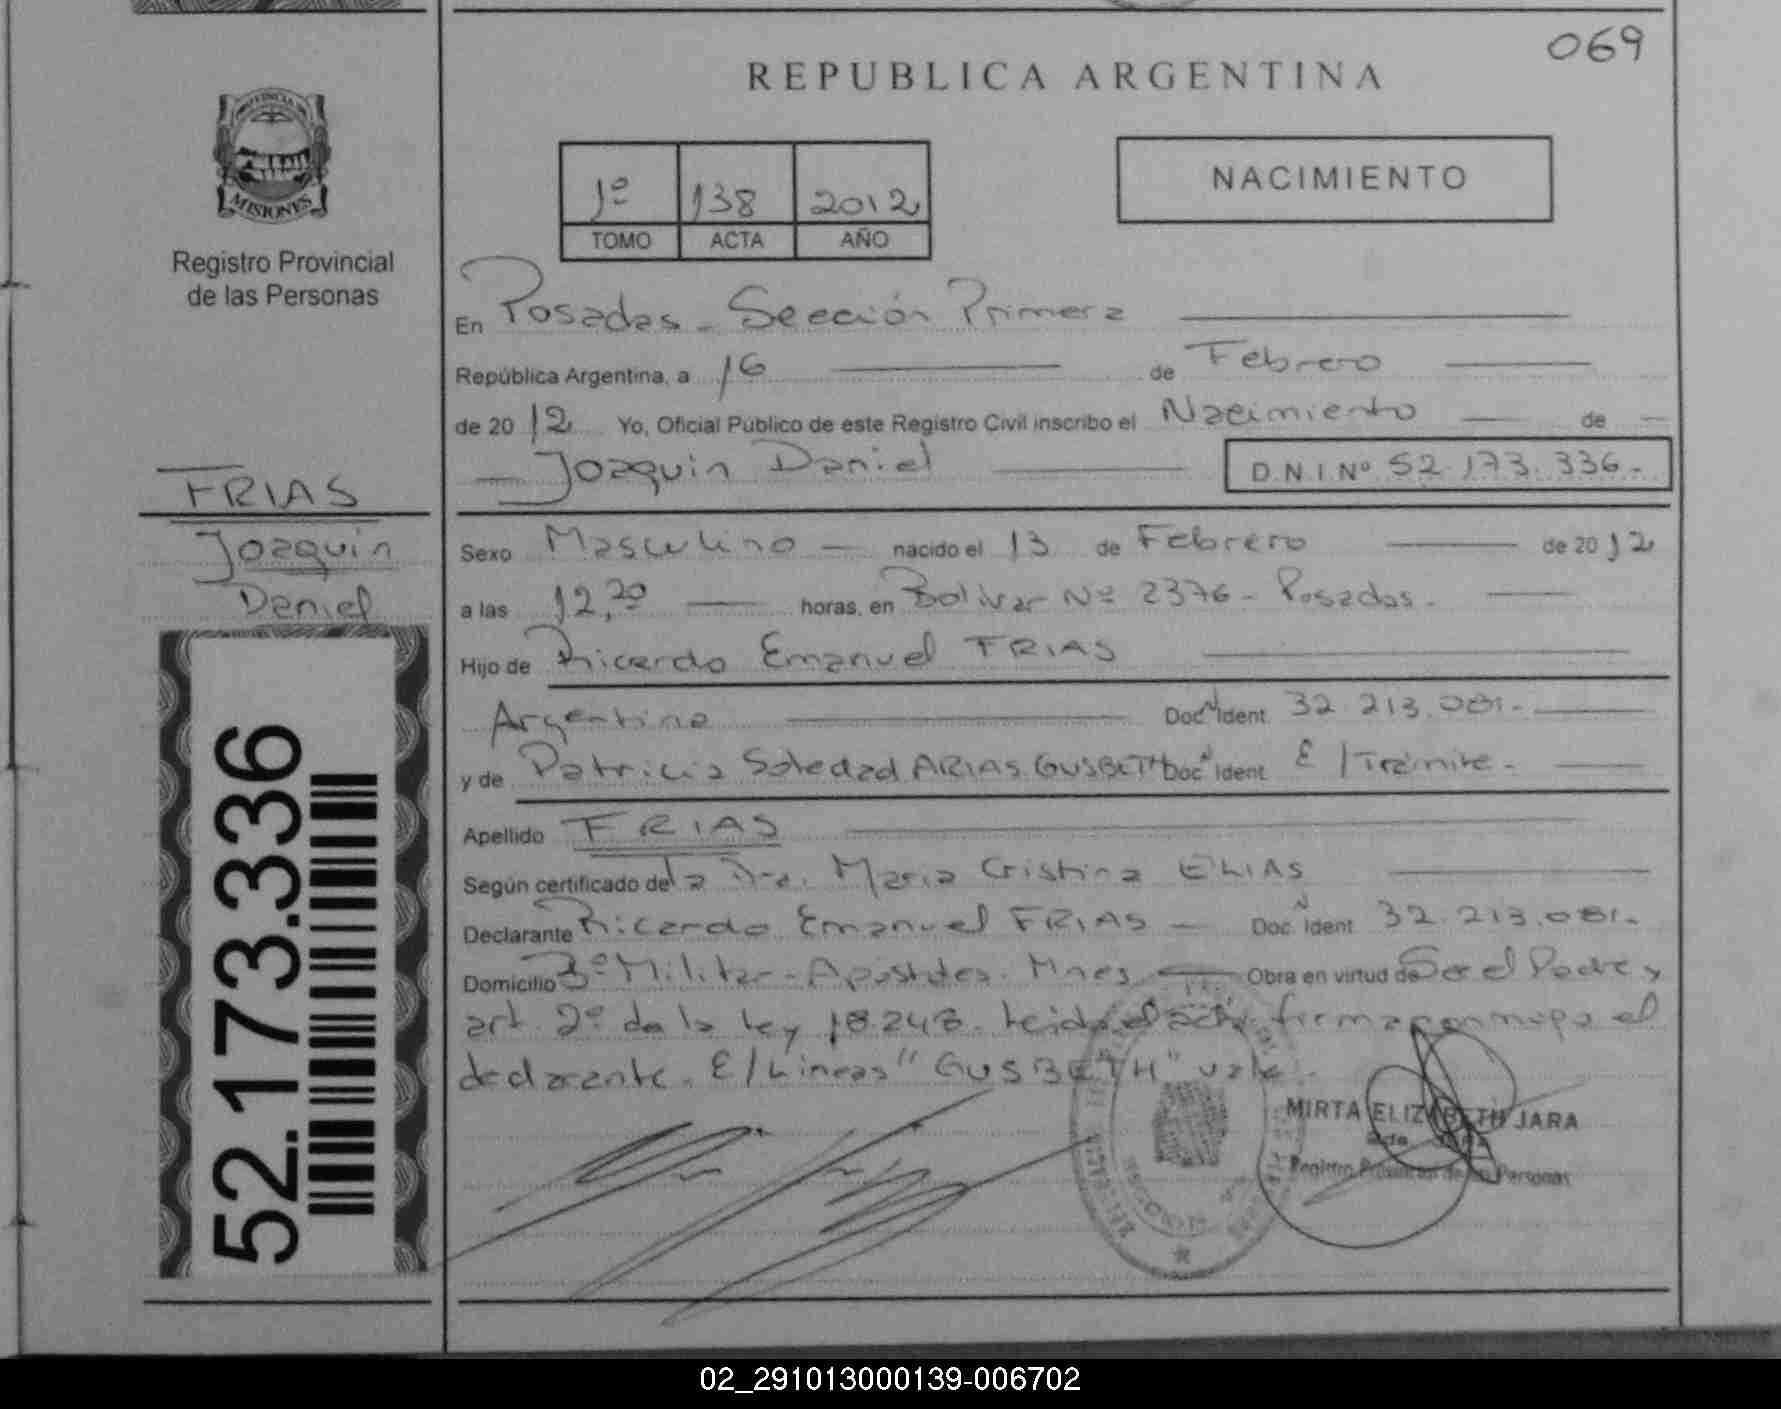 069
REPUBLICA ARGENTINA
PROVINCIA DE
MISIONES
Registro Provincial
de las Personas
1º 138 2012
TOMO ACTA AÑO
NACIMIENTO
En Posadas - Sección Primera
República Argentina, a 16 de Febrero
de 2012 Yo, Oficial Público de este Registro Civil inscribo el Nacimiento de
Joaquin Daniel D.N.I Nº 52.173.336.-
FRIAS
Joaquin
Daniel
Sexo Masculino nacido el 13 de Febrero de 2012
a las 12,20 horas, en Bolivar Nº 2376 - Posadas.
Hijo de Ricardo Emanuel FRIAS
Argentina Doc. Ident. 32.213.081.-
y de Patricia Soledad ARIAS GUSBETH Doc. Ident. E/Trámite.-
Apellido FRIAS
Según certificado de la Dra. Maria Cristina ELIAS
Declarante Ricardo Emanuel FRIAS Doc. Ident. 32.213.081.-
Domicilio Bº Militar - Apóstoles. Mnes Obra en virtud de Ser el Padre y
art. 2º de la Ley 18.248. Leida el acta firma conmigo el
declarante. E/Lineas "GUSBETH" vale.
MIRTA ELIZABETH JARA
Registro Provincial de las Personas
52.173.336
02_291013000139-006702